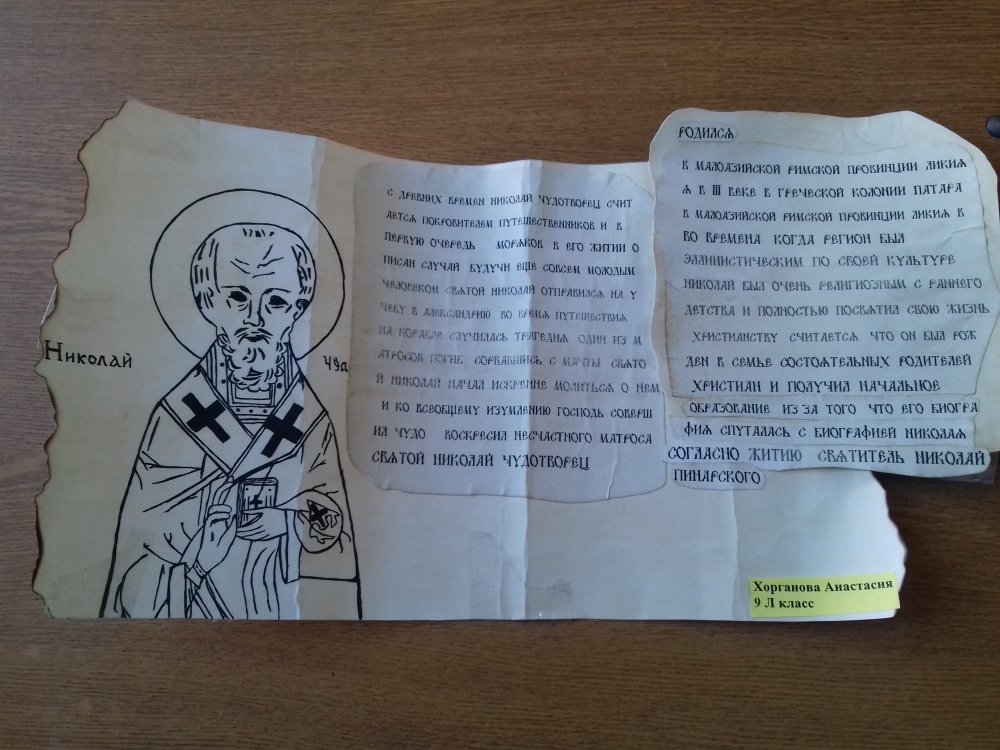 Николай
чуд
с древних времен николай чудотворец счит
ается покровителем путешественников и в
первую очередь моряков в его житии о
писан случай будучи еще совсем молодым
человеком святой николай отправился на у
чебу в александрию во время путешествия
на корабле случилась трагедия один из м
атросов погиб сорвавшись с мачты свято
й николай начал искренне молиться о нем
и ко всеобщему изумлению господь соверш
ил чудо воскресил несчастного матроса
святой николай чудотворец
родился
в малоазийской римской провинции ликия
я в III веке в греческой колонии патара
в малоазийской римской провинции ликия в
во времена когда регион был
эллинистическим по своей культуре
николай был очень религиозным с раннего
детства и полностью посвятил свою жизнь
христианству считается что он был рож
ден в семье состоятельных родителей
христиан и получил начальное
образование из за того что его биогра
фия спуталась с биографией николая
согласно житию святитель николай
пинарского
Хорганова Анастасия
9 Л класс